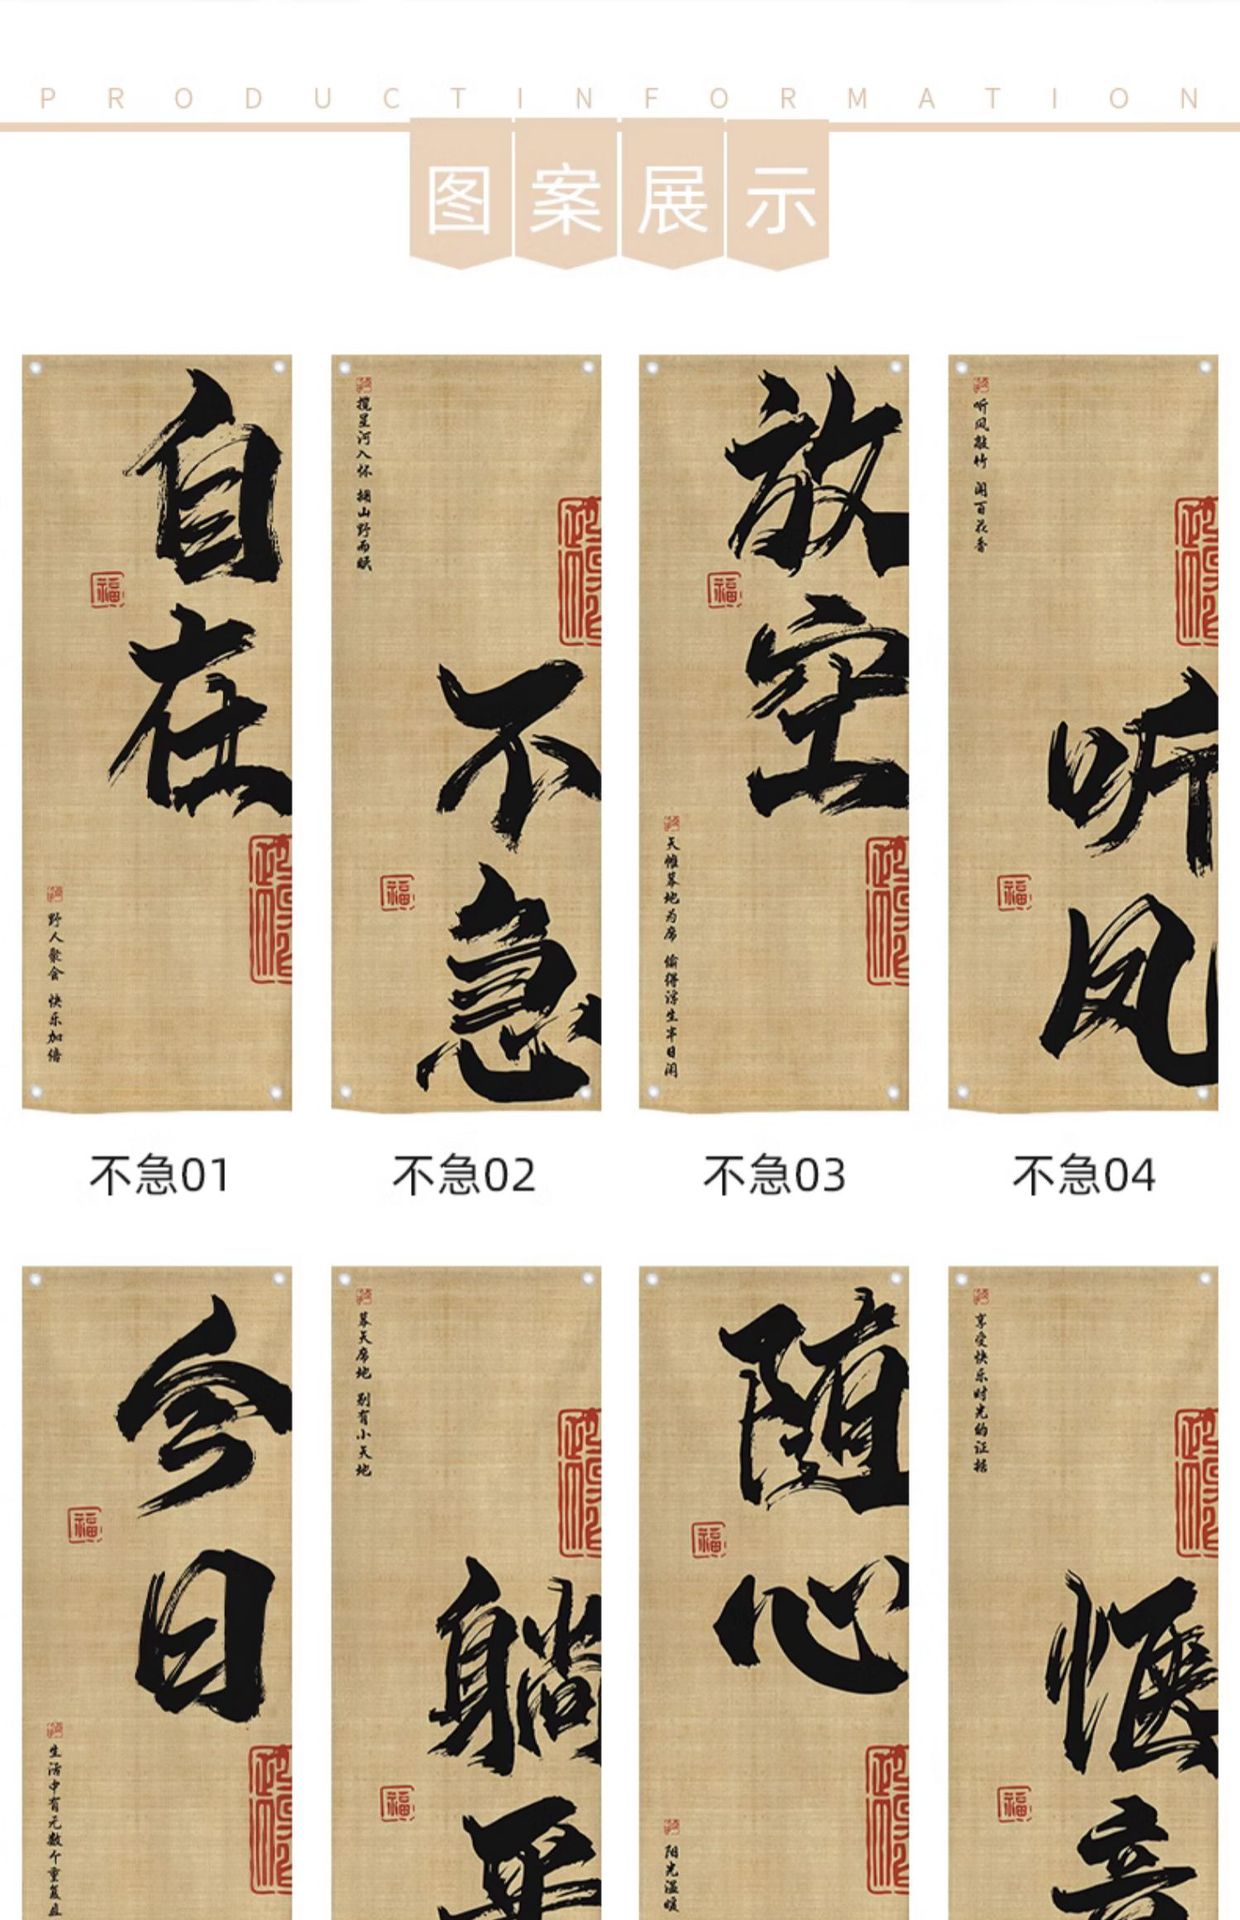 PRODUCTINFORMATION
图案展示
自在
福
野人聚会 快乐加倍
不急01
揽星河入怀 拥山野而眠
不急
福
不急02
放空
福
天帷幕地为席 偷得浮生半日闲
不急03
听风敲竹 闻百花香
听风
福
不急04
今日
福
生活中有无数个重复且
幕天席地 别有小天地
躺平
福
随心
福
阳光温暖
享受快乐时光的证据
惬意
福